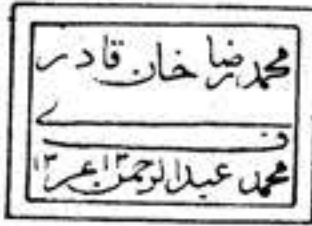 محمد رضا خان قادرے
محمد عبدالرحمن عرف